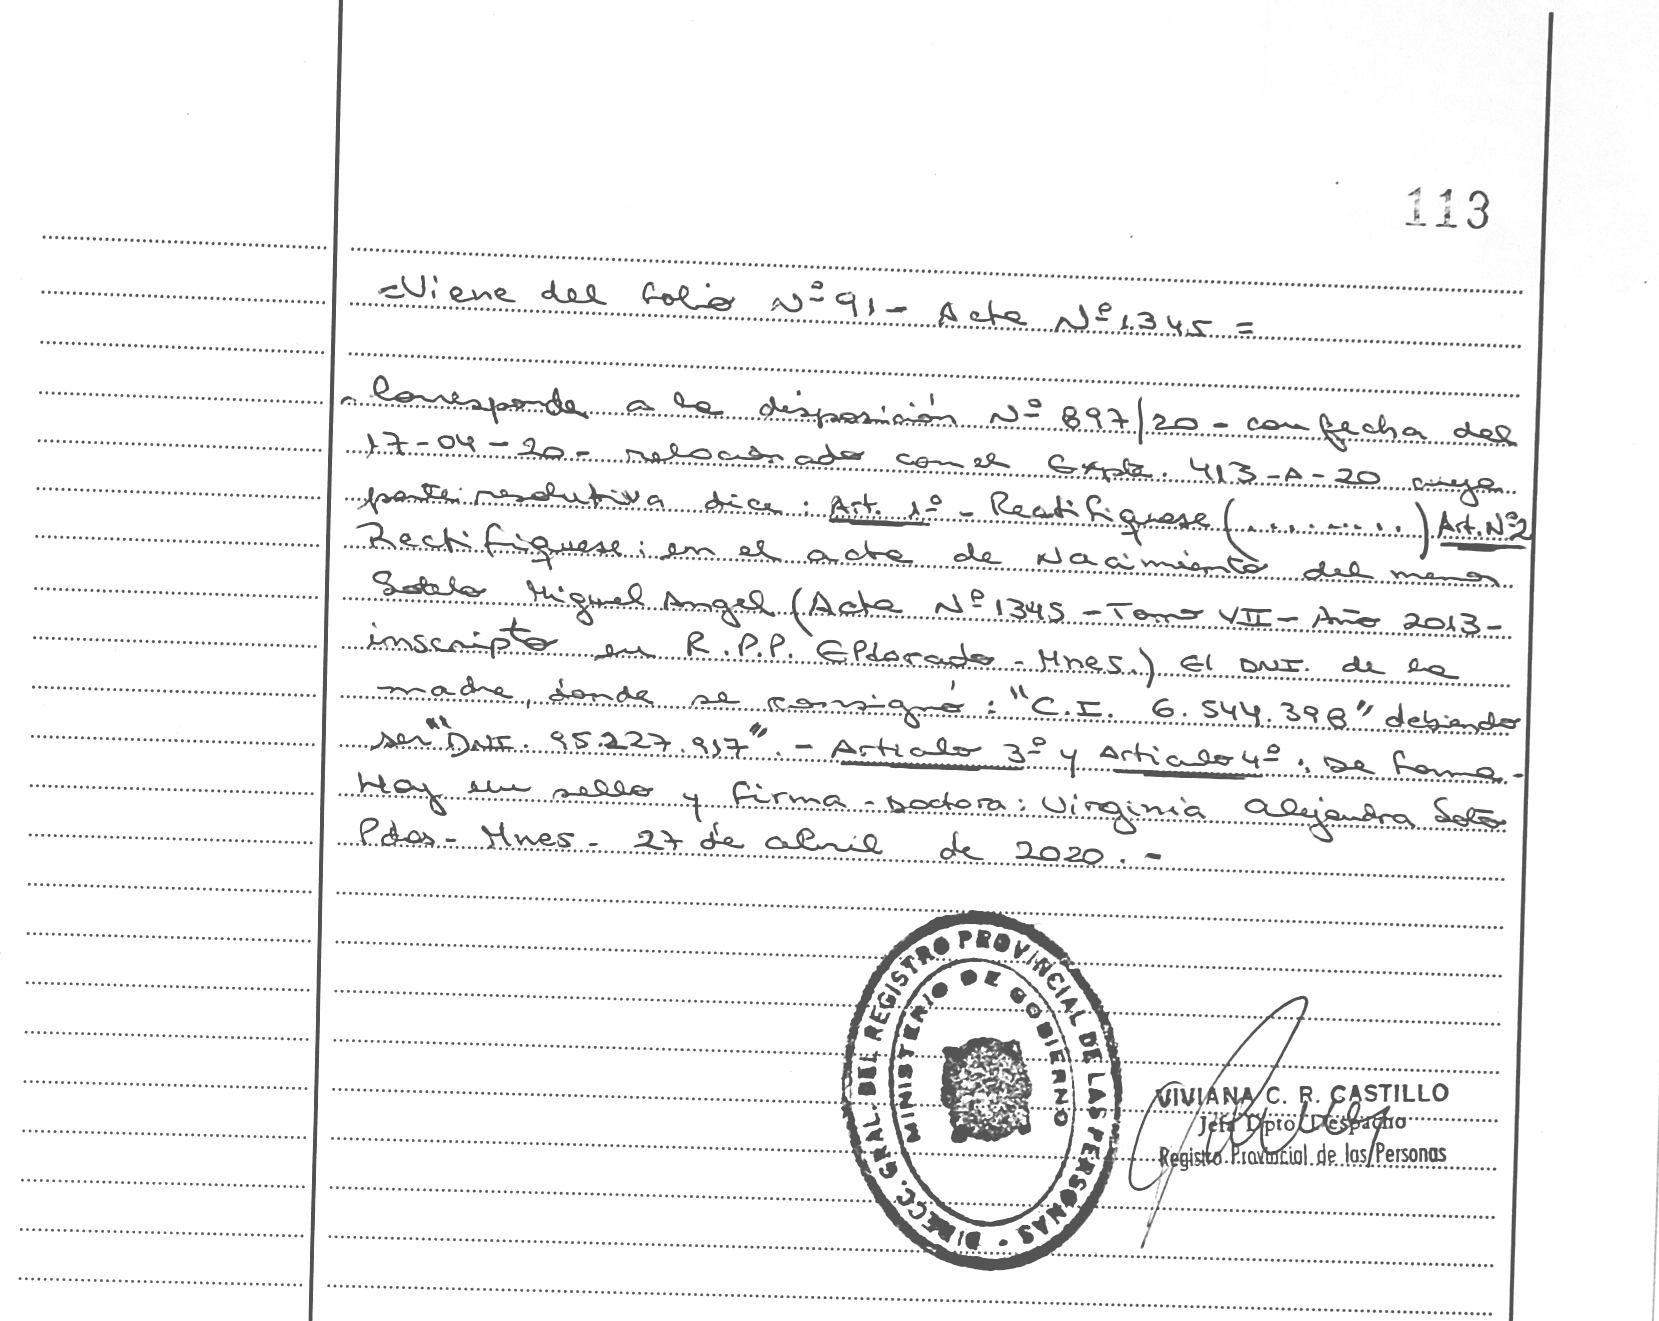 113
=Viene del folio Nº 91 - Acta Nº 1.345 =
Corresponde a la disposición Nº 897/20 - con fecha del
17-04-20 - relacionado con el Expte. 413-A-20 cuya
parte resolutiva dice: Art. 1º - Rectifiquese (..........) Art. Nº 2
Rectifiquese: en el acta de Nacimiento del menor
Sotelo Miguel Angel (Acta Nº 1345 - Tomo VII - Año 2013 -
inscripto en R.P.P. Eldorado - Mnes.) El DNI. de la
madre, donde se consignó: "C.I. 6.544.398" debiendo
ser "DNI. 95.227.917". - Articulo 3º y Articulo 4º: De forma.-
Hay un sello y firma - Doctora: Virginia Alejandra Soto
Pdas - Mnes - 27 de abril de 2020. -
DIRECC. GRAL. DEL REGISTRO PROVINCIAL DE LAS PERSONAS -
MINISTERIO DE GOBIERNO
VIVIANA C. R. CASTILLO
Jefa Dpto. Despacho
Registro Provincial de las Personas